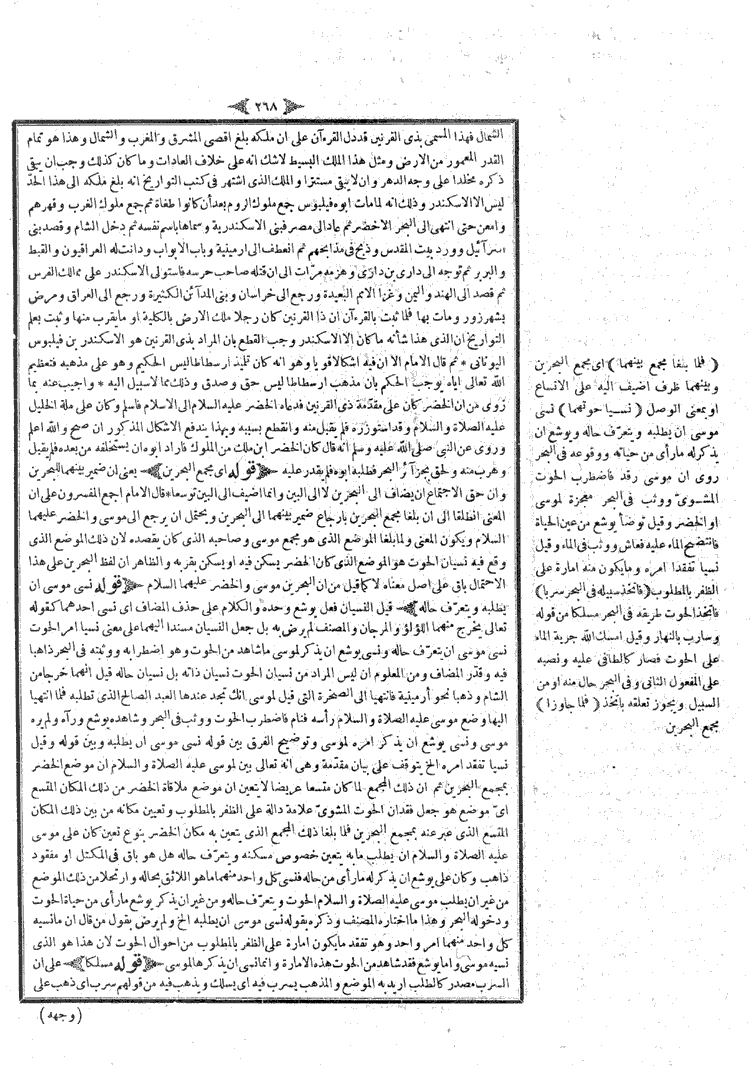 ﴿ ٢٦٨ ﴾
الشمال فهذا المسمى بذى القرنين قد دل القرءآن على ان ملكه بلغ اقصى المشرق و المغرب و الشمال و هذا هو تمام
القدر المعمور من الارض و مثل هذا الملك البسيط لاشك انه على خلاف العادات و ما كان كذلك وجب ان يبقى
ذكره مخلدا على وجه الدهر و ان لا يبقى مستترا و الملك الذى اشتهر فى كتب التواريخ انه بلغ ملكه الى هذا الحد
ليس الا الاسكندر و ذلك انه لما مات ابوه فيلبوس جمع ملوك الروم بعد أن كانوا طغاة ثم جمع ملوك الغرب و قهرهم
و امعن حتى انتهى الى البحر الاخضر ثم عاد الى مصر فبنى الاسكندرية و سماها باسم نفسه ثم دخل الشام و قصد بنى
اسرآئيل و ورد بيت المقدس و ذبح فى مذابحهم ثم انعطف الى ارمينية و باب الابواب و دانت له العراقيون و القبط
و البربر ثم توجه الى دارى بن دارى و هزمه مرات الى ان قتله صاحب حرسه فاستولى الاسكندر على ممالك الفرس
ثم قصد الى الهند و الصين و غزا الامم البعيدة و رجع الى خراسان و بنى المدآئن الكثيرة و رجع الى العراق و مرض
بشهرزور و مات بها فلما ثبت بالقرءآن ان ذا القرنين كان رجلا ملك الارض بالكلية او ما يقرب منها و ثبت بعلم
التواريخ ان الذى هذا شأنه ما كان الا الاسكندر وجب القطع بان المراد بذى القرنين هو الاسكندر بن فيلبوس
اليونانى * ثم قال الامام الا ان فيه اشكالا قويا و هو انه كان تلميذ ارسطاطاليس الحكيم و هو على مذهبه فتعظيم
الله تعالى اياه يوجب الحكم بان مذهب ارسطاطاليس حق و صدق و ذلك مما لا سبيل اليه * و اجيب عنه بما
روى من ان الخضر كان على مقدمة ذى القرنين فدعاه الخضر عليه السلام الى الاسلام فاسلم و كان على ملة الخليل
عليه الصلاة و السلام و قد استوزره فلم يقبل منه و انقطع بسببه و بهذا يندفع الاشكال المذكور ان صح و الله اعلم
و روى عن النبى صلى الله عليه و سلم انه قال كان الخضر ابن ملك من الملوك فاراد ابوه ان يستخلفه من بعده فلم يقبل
و هرب منه و لحق بجزآئر البحر فطلبه ابوه فلم يقدر عليه ﴿ قوله اى مجمع البحرين ﴾ يعنى ان ضمير بينهما للبحرين
و ان حق الاجتماع ان يضاف الى البحرين لا الى البين و انما اضيف الى البين توسعا * قال الامام اجمع المفسرون على ان
المعنى انطلقا الى ان بلغا مجمع البحرين بارجاع ضمير بينهما الى البحرين و يحتمل ان يرجع الى موسى و الخضر عليهما
السلام و يكون المعنى و لما بلغا الموضع الذى هو مجمع موسى و صاحبه الذى كان يقصده لان ذلك الموضع الذى
وقع فيه نسيان الحوت هو الموضع الذى كان الخضر يسكن فيه او يسكن بقربه و الظاهر ان لفظ البحرين على هذا
الاحتمال باق على اصل معناه لا كما قيل من ان البحرين موسى و الخضر عليهما السلام ﴿ قوله نسى موسى ان
يطلبه و يتعرف حاله ﴾ قيل النسيان فعل يوشع وحده و الكلام على حذف المضاف اى نسى احدهما كقوله
تعالى يخرج منهما اللؤلؤ و المرجان و المصنف لم يرض به بل جعل النسيان مسندا اليهما على معنى نسيا امر الحوت
نسى موسى ان يتعرف حاله و نسى يوشع ان يذكر لموسى ما شاهد من الحوت و هو اضطرابه و وثبته فى البحر ذاهبا
فيه و قدر المضاف و من المعلوم ان ليس المراد من نسيان الحوت نسيان ذاته بل نسيان حاله قيل انهما خرجا من
الشام و ذهبا نحو أرمينية فانتهيا الى الصخرة التى قيل لموسى انك تجد عندها العبد الصالح الذى تطلبه فلما انتهيا
اليها وضع موسى عليه الصلاة و السلام رأسه فنام فاضطرب الحوت و وثب فى البحر و شاهده يوشع و رآه و لم يره
موسى و نسى يوشع ان يذكر امره لموسى و توضيح الفرق بين قوله نسى موسى ان يطلبه و بين قوله و قيل
نسيا تفقد امره الخ يتوقف على بيان مقدمة و هى انه تعالى بين لموسى عليه الصلاة و السلام ان موضع الخضر
بمجمع البحرين ثم ان ذلك المجمع لما كان متسعا عريضا لا يتعين ان موضع ملاقاة الخضر من ذلك المكان المتسع
اى موضع هو جعل فقدان الحوت المشوى علامة دالة على الظفر بالمطلوب و تعيين مكانه من بين ذلك المكان
المتسع الذى عبر عنه بمجمع البحرين فلما بلغا ذلك المجمع الذى يتعين به مكان الخضر بنوع تعين كان على موسى
عليه الصلاة و السلام ان يطلب ما به يتعين خصوص مسكنه و يتعرف حاله هل هو باق فى المكتل او مفقود
ذاهب و كان على يوشع ان يذكر له ما رأى من حاله فنسى كل واحد منهما ما هو اللائق بحاله و ارتحلا من ذلك الموضع
من غير ان يطلب موسى عليه الصلاة و السلام الحوت و يتعرف حاله و من غير ان يذكر يوشع ما رأى من حياة الحوت
و دخوله البحر و هذا ما اختاره المصنف و ذكره بقوله نسى موسى ان يطلبه الخ و لم يرض بقول من قال ان ما نسيه
كل واحد منهما امر واحد و هو تفقد ما يكون امارة على الظفر بالمطلوب من احوال الحوت لان هذا هو الذى
نسيه موسى و اما يوشع فقد شاهد من الحوت هذه الامارة و انما نسى ان يذكرها لموسى ﴿ قوله مسلكا ﴾ على ان
السرب مصدر كالطلب اريد به الموضع و المذهب يسرب فيه اى يسلك و يذهب فيه من قولهم سرب اى ذهب على
( وجهه )
( فلما بلغا مجمع بينهما ) اى مجمع البحرين
و بينهما ظرف اضيف اليه على الاتساع
او بمعنى الوصل ( نسيا حوتهما ) نسى
موسى ان يطلبه و يتعرف حاله و يوشع ان
يذكر له ما رأى من حياته و وقوعه فى البحر
روى ان موسى رقد فاضطرب الحوت
المشوى و وثب فى البحر معجزة لموسى
او الخضر و قيل توضأ يوشع من عين الحياة
فانتضح الماء عليه فعاش و وثب فى الماء و قيل
نسيا تفقدا امره و ما يكون منه امارة على
الظفر بالمطلوب ( فاتخذ سبيله فى البحر سربا )
فاتخذ الحوت طريقه فى البحر مسلكا من قوله
و سارب بالنهار و قيل امسك الله جرية الماء
على الحوت فصار كالطاقى عليه و نصبه
على المفعول الثانى و فى البحر حال منه او من
السبيل و يجوز تعلقه باتخذ ( فلما جاوزا )
مجمع البحرين